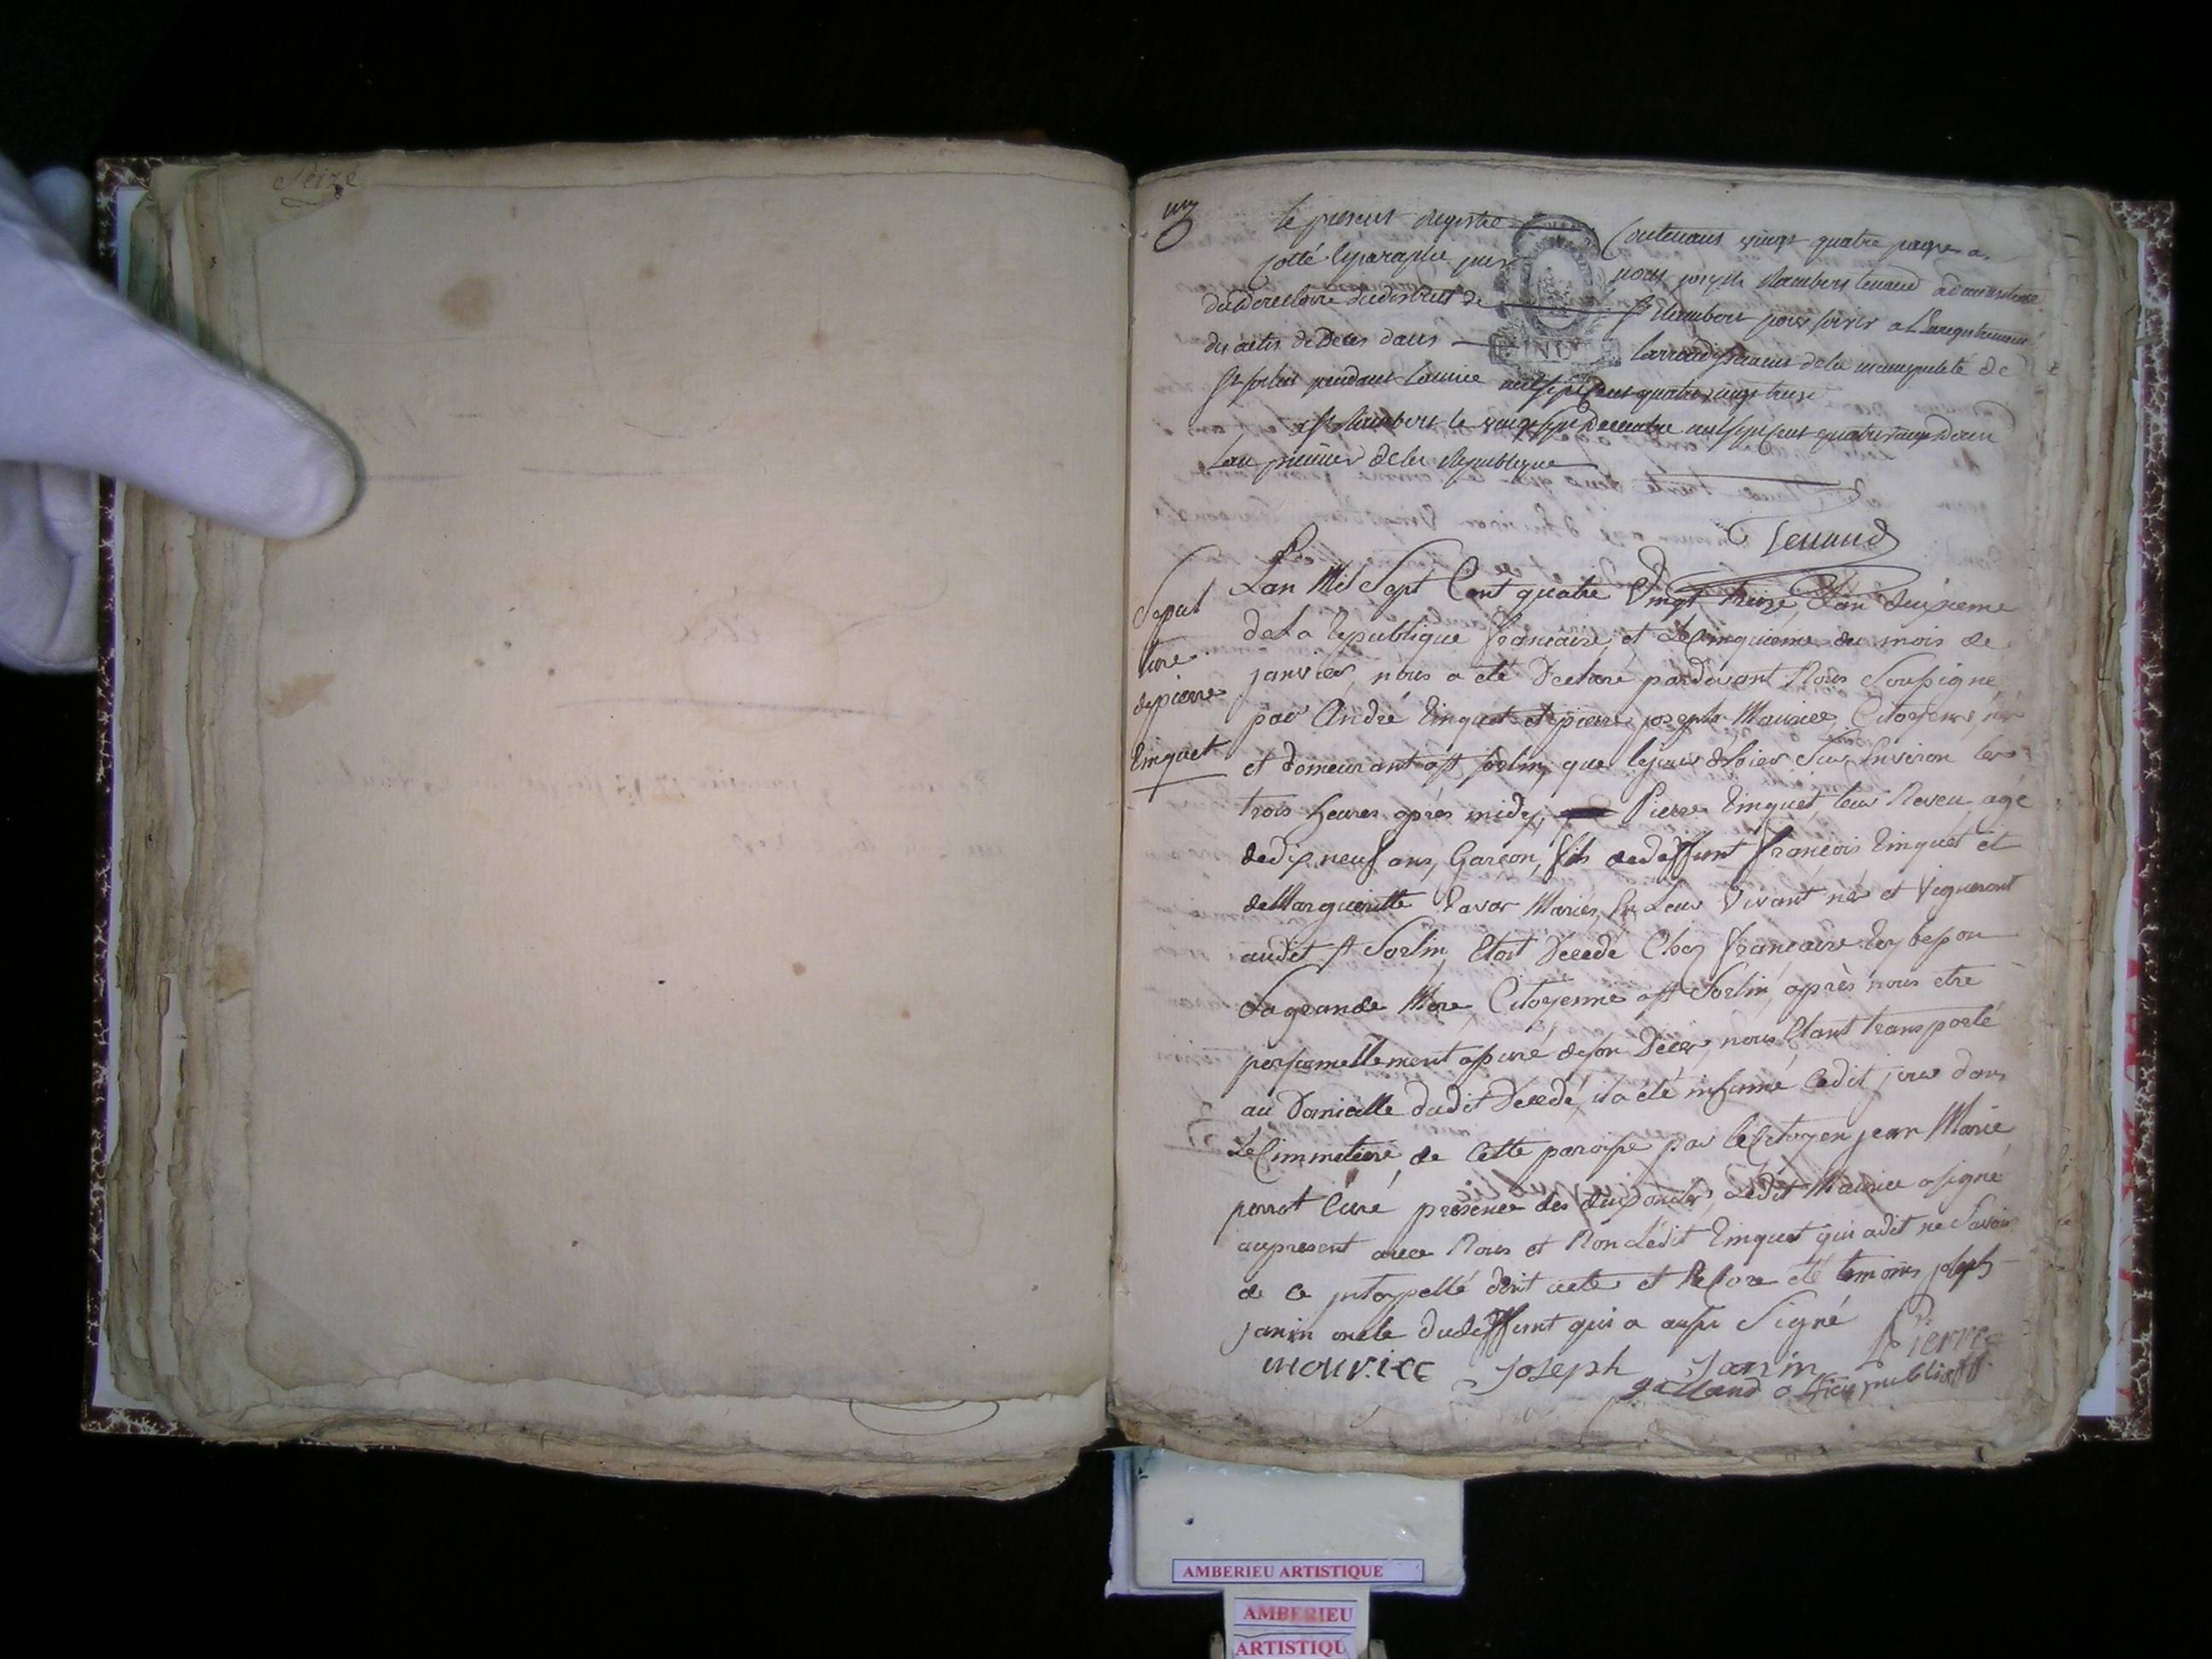 Seize
un
le present Registre contenant vingt quatre pages a
cotté et paraphé par nous joseph Rambert tenand administrateur
du Directoire du district de St Rambert pour servir a L'enregistrement
des actes de Deces dans l'arrondissement de la municipalité de
St sorlin pendant l'annee mil sept cent quatre vingt treize
a St Rambert le vingt sept Decembre mil sept cent quatre vingt Douze
L'an premier de la Republique
Tenand
Sepul
ture
de pierre
Tinguet
L'an Mil Sept Cent quatre Vingt treize L'an deuxieme
de La Republique francaise, et Le Cinquieme du mois de
janvier, nous a eté Declaré pardevant Nous Soussigné
par André Tinguet et pierre joseph Maurice, Citoyens, nés
et demeurant a St Sorlin, que le jour d'hier Sur Environ les
trois heures après midy, Pierre Tinguet, leur Neveu, agé
de dix neuf ans, Garçon, fils de deffunt françois Tinguet et
de Margueritte Mariés, En Leur Vivant nés et Vignerons
audit St Sorlin, Etoit Decedé Chez francoise
Sa grande Mere, Citoyenne a St Sorlin, après nous etre
personnellement assuré de son Décès, nous Etant transporté
au Domicille dudit Decedé, il a été inhumé Cedit jour dans
Le Cimmetiere de Cette paroisse par le Citoyen jean Marie
perrot Curé, presence des deux oncles, Ledit Maurice a signé
au present avec Nous et Non Ledit Tinguet qui a dit ne Savoir
de ce interpellé dont acte et Encore eté temoins joseph
janin oncle du deffunt qui a aussi Signé
maurice Joseph Janin Pierre
galland officier public
AMBERIEU ARTISTIQUE
AMBERIEU
ARTISTIQU